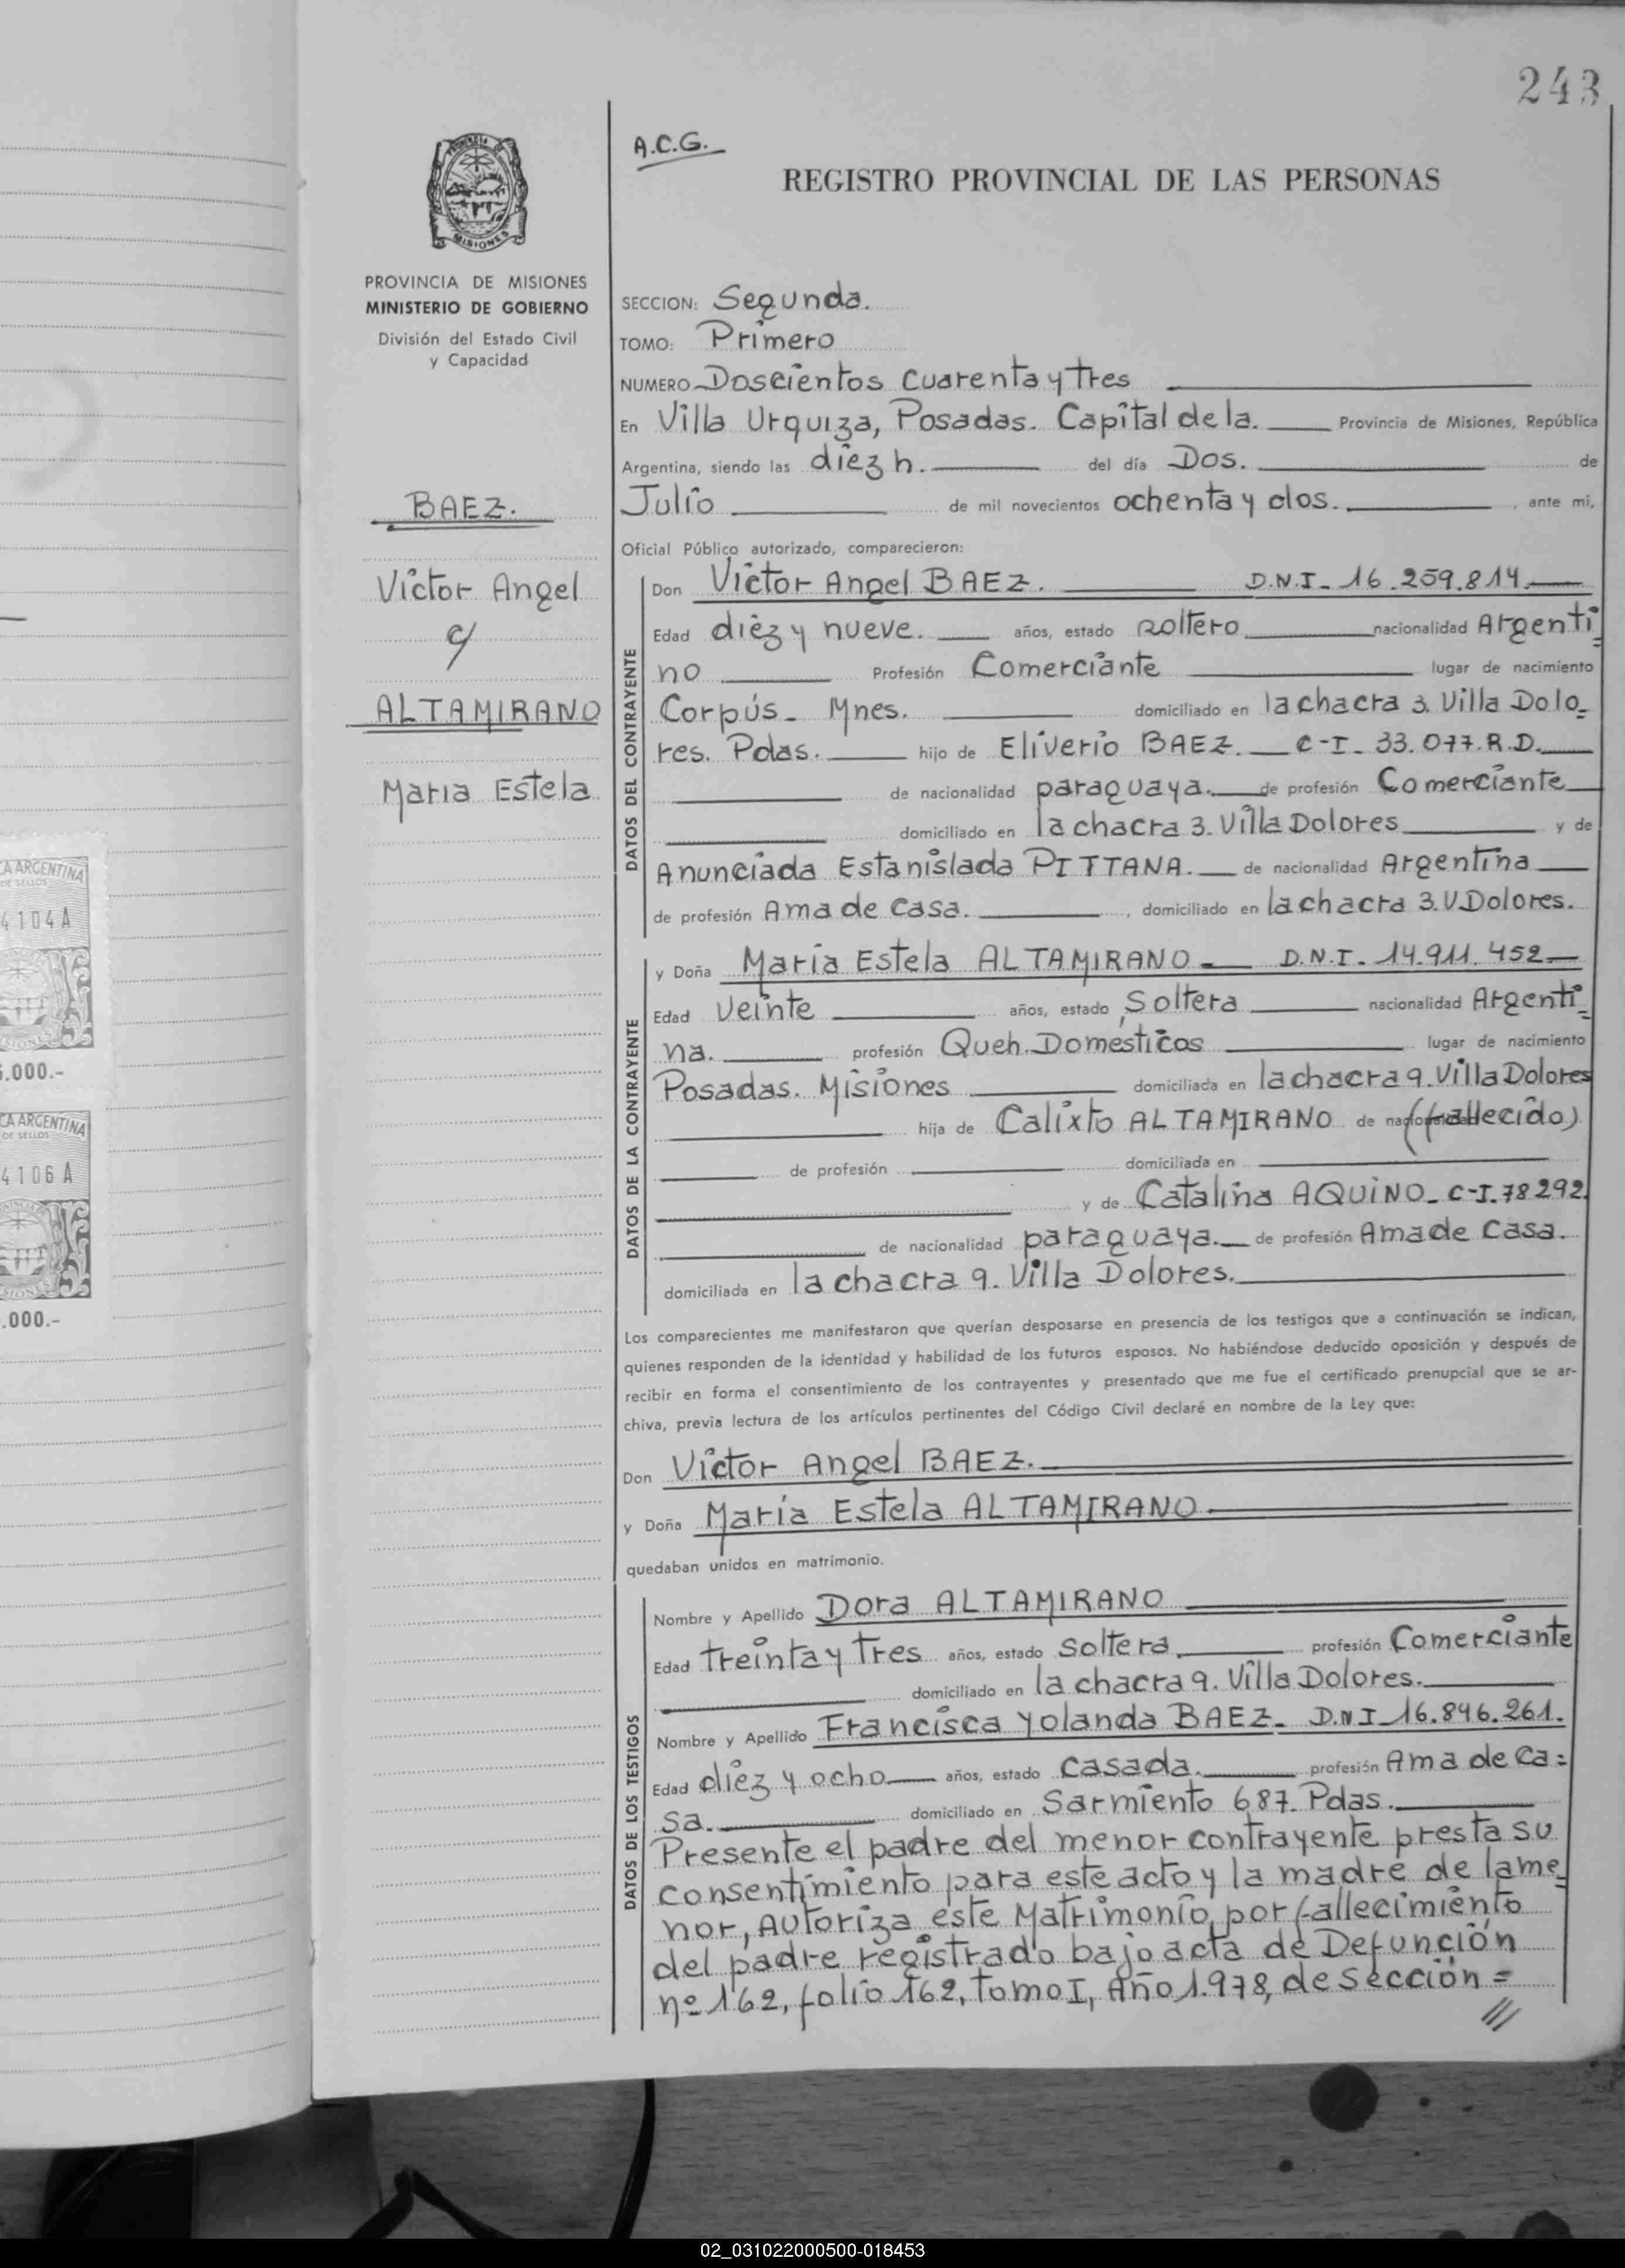 243
A.C.G.
REGISTRO PROVINCIAL DE LAS PERSONAS
PROVINCIA DE MISIONES
MINISTERIO DE GOBIERNO
División del Estado Civil
y Capacidad
BAEZ.
Victor Angel
c/
ALTAMIRANO
Maria Estela
SECCION: Segunda.
TOMO: Primero
NUMERO Doscientos Cuarenta y tres
En Villa Urquiza, Posadas. Capital de la. Provincia de Misiones, República
Argentina, siendo las diez h. del día Dos. de
Julio de mil novecientos ochenta y dos. , ante mi,
Oficial Público autorizado, comparecieron:
DATOS DEL CONTRAYENTE
Don Victor Angel BAEZ. D.N.I- 16.259.814.
Edad diez y nueve. años, estado soltero nacionalidad Argenti
no Profesión Comerciante lugar de nacimiento
Corpús- Mnes. domiciliado en la chacra 3. Villa Dolo-
res. Pdas. hijo de Eliverio BAEZ. C-I- 33.077.R.D.
de nacionalidad paraguaya. de profesión Comerciante
domiciliado en la chacra 3. Villa Dolores y de
Anunciada Estanislada PITTANA. de nacionalidad Argentina
de profesión Ama de casa. , domiciliado en la chacra 3.V.Dolores.
DATOS DE LA CONTRAYENTE
y Doña María Estela ALTAMIRANO- D.N.I- 14.911.452
Edad Veinte años, estado Soltera nacionalidad Argenti
na. profesión Queh. Domesticos lugar de nacimiento
Posadas. Misiones domiciliada en la chacra 9. Villa Dolores
hija de Calixto ALTAMIRANO de nacionalidad (fallecido)
de profesión domiciliada en
y de Catalina AQUINO- C-I. 78292.
de nacionalidad paraguaya. de profesión Ama de Casa.
domiciliada en la chacra 9. Villa Dolores.
Los comparecientes me manifestaron que querían desposarse en presencia de los testigos que a continuación se indican,
quienes responden de la identidad y habilidad de los futuros esposos. No habiéndose deducido oposición y después de
recibir en forma el consentimiento de los contrayentes y presentado que me fue el certificado prenupcial que se ar-
chiva, previa lectura de los artículos pertinentes del Código Civil declaré en nombre de la Ley que:
Don Victor Angel BAEZ.
y Doña María Estela ALTAMIRANO
quedaban unidos en matrimonio.
DATOS DE LOS TESTIGOS
Nombre y Apellido Dora ALTAMIRANO
Edad treinta y tres años, estado soltera profesión Comerciante
domiciliado en la chacra 9. Villa Dolores.
Nombre y Apellido Francisca Yolanda BAEZ- D.N.I-16.846.261.
Edad diez y ocho años, estado casada. profesión Ama de ca=
sa. domiciliado en Sarmiento 687. Pdas.
Presente el padre del menor contrayente presta su
consentimiento para este acto y la madre de la me
nor, Autoriza este Matrimonio, por fallecimiento
del padre registrado bajo acta de Defunción
nº 162, folio 162, tomo I, Año 1.978, de sección =
///
CA ARGENTINA
DE SELLOS
4104 A
MISIONES
5.000.-
CA ARGENTINA
DE SELLOS
4106 A
.000.-
02_031022000500-018453